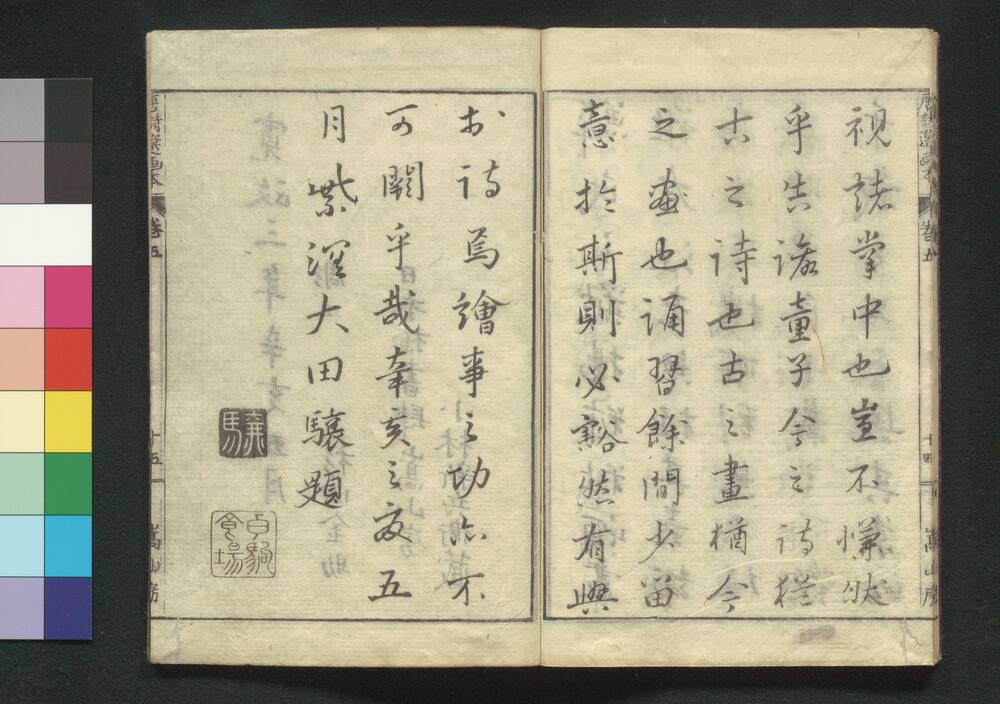 視諸掌中也豈不愉快
乎告諸童子今之詩猶
古之詩也古之畫猶今
之畫也誦習餘間少留
意於斯則必豁然有興
於詩焉繪事之功亦不
可闕乎哉辛亥之夏五
月紫溟大田驤題
唐詩選画本 卷五 十四 嵩山房
唐詩選画本 卷五 十五 嵩山房